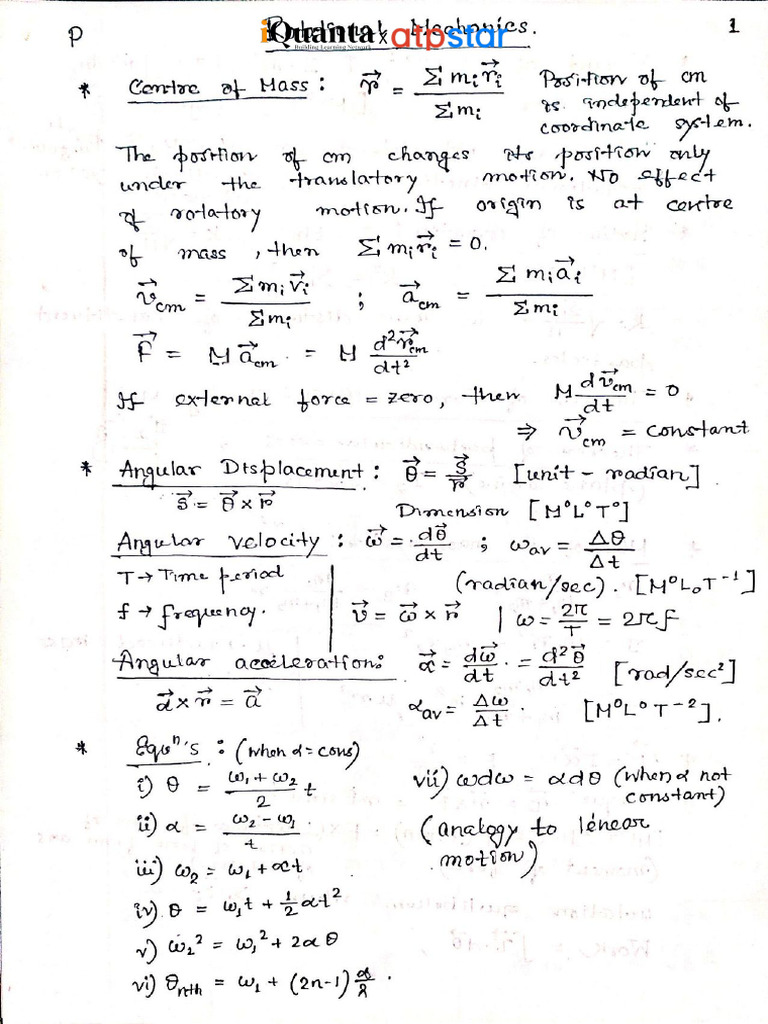 P
Rotational Mechanics.
1
iQuanta x atpstar
Building Learning Network
* Centre of Mass : r⃗ = Σ mᵢ r⃗ᵢ / Σ mᵢ
Position of cm
is independent of
coordinate system.
The position of cm changes its position only
under the translatory motion. No effect
of rotatory motion. If origin is at centre
of mass, then Σ mᵢ r⃗ᵢ = 0.
v⃗cm = Σ mᵢ v⃗ᵢ / Σ mᵢ ; a⃗cm = Σ mᵢ a⃗ᵢ / Σ mᵢ
F⃗ = M a⃗cm = M d²r⃗cm / dt²
If external force = zero, then M dv⃗cm / dt = 0
⇒ v⃗cm = constant
* Angular Displacement : θ⃗ = s⃗ / r⃗ [unit - radian]
s⃗ = θ⃗ × r⃗
Dimension [M⁰L⁰T⁰]
Angular velocity : ω⃗ = dθ⃗ / dt ; ωav = Δθ / Δt
T → Time period
(radian/sec). [M⁰L₀T⁻¹]
f → frequency.
v⃗ = ω⃗ × r⃗ | ω = 2π / T = 2πf
Angular acceleration: α⃗ = dω⃗ / dt = d²θ⃗ / dt² [rad/sec²]
α⃗ × r⃗ = a⃗
αav = Δω / Δt . [M⁰L⁰T⁻²].
* Equⁿ's : (when α = cons)
i) θ = (ω₁ + ω₂) / 2 t
ii) α = (ω₂ - ω₁) / t .
iii) ω₂ = ω₁ + αt
iv) θ = ω₁t + ½ αt²
v) ω₂² = ω₁² + 2αθ
vi) θnth = ω₁ + (2n-1) α/2 .
vii) ωdω = αdθ (when α not
constant)
(analogy to linear
motion)